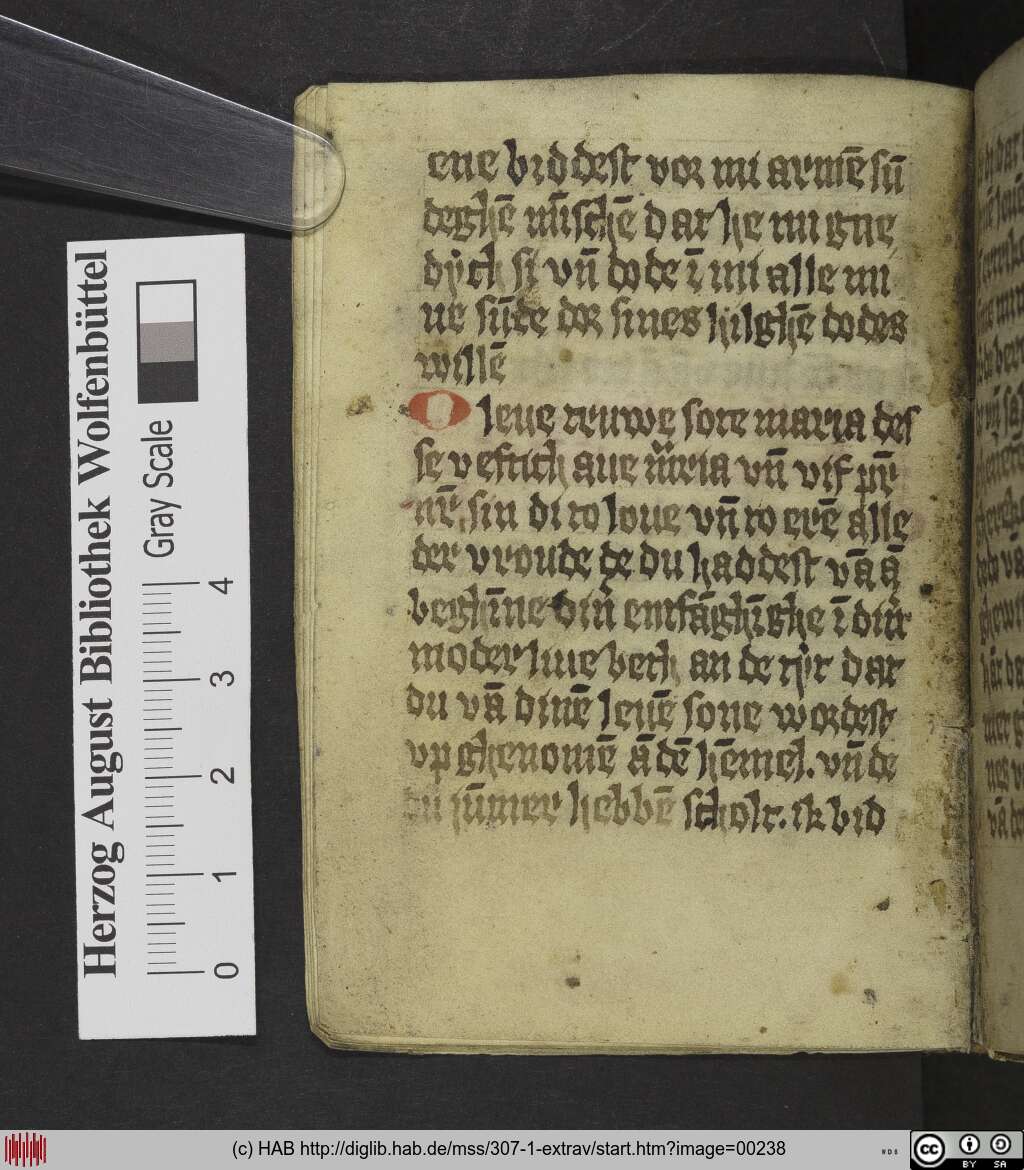 ene biddest vor mi armē sū
deghē mīschē dat he mi gne
dÿch si vñ dode ī mi alle mi
ne sūde dor sines hilghē dodes
willē
O leue rruwe sote maria des
se veftich aue mīa vñ vif pr̄
nr̄ sin di to loue vñ to erē alle
der vroude de du haddest vā ā
beghīne diñ emfāghīghe ī diñr
moder liue beth an de tÿt dat
du vā dinē leuē sone wordest
vp ghenomē ā dē hēmel. vñ de
du jūmer hebbē scholt. ik bid
Herzog August Bibliothek Wolfenbüttel
Gray Scale
0 1 2 3 4
(c) HAB http://diglib.hab.de/mss/307-1-extrav/start.htm?image=00238
cc BY SA